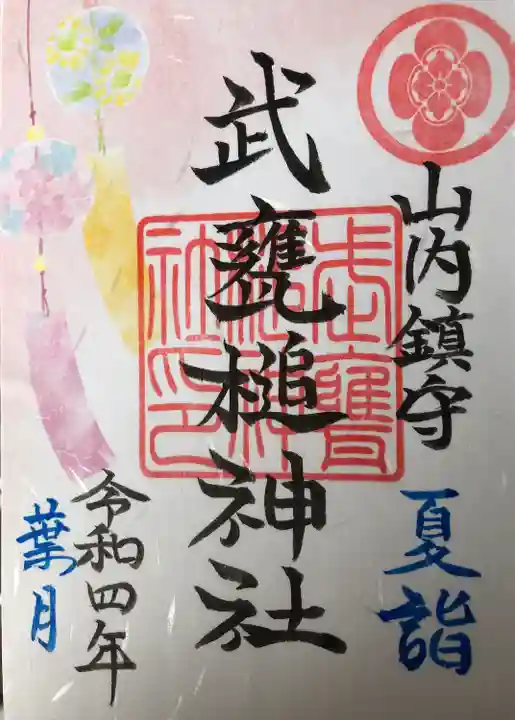 山内鎮守
夏詣
武甕槌神社
令和四年
葉月